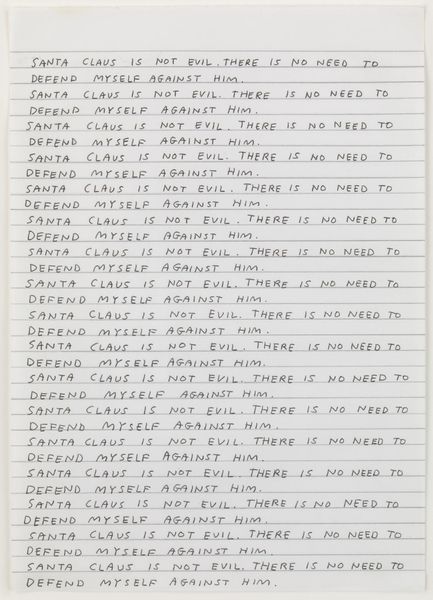 SANTA CLAUS IS NOT EVIL. THERE IS NO NEED TO
DEFEND MYSELF AGAINST HIM.
SANTA CLAUS IS NOT EVIL. THERE IS NO NEED TO
DEFEND MYSELF AGAINST HIM.
SANTA CLAUS IS NOT EVIL. THERE IS NO NEED TO
DEFEND MYSELF AGAINST HIM.
SANTA CLAUS IS NOT EVIL. THERE IS NO NEED TO
DEFEND MYSELF AGAINST HIM.
SANTA CLAUS IS NOT EVIL. THERE IS NO NEED TO
DEFEND MYSELF AGAINST HIM.
SANTA CLAUS IS NOT EVIL. THERE IS NO NEED TO
DEFEND MYSELF AGAINST HIM.
SANTA CLAUS IS NOT EVIL. THERE IS NO NEED TO
DEFEND MYSELF AGAINST HIM.
SANTA CLAUS IS NOT EVIL. THERE IS NO NEED TO
DEFEND MYSELF AGAINST HIM.
SANTA CLAUS IS NOT EVIL. THERE IS NO NEED TO
DEFEND MYSELF AGAINST HIM.
SANTA CLAUS IS NOT EVIL. THERE IS NO NEED TO
DEFEND MYSELF AGAINST HIM.
SANTA CLAUS IS NOT EVIL. THERE IS NO NEED TO
DEFEND MYSELF AGAINST HIM.
SANTA CLAUS IS NOT EVIL. THERE IS NO NEED TO
DEFEND MYSELF AGAINST HIM.
SANTA CLAUS IS NOT EVIL. THERE IS NO NEED TO
DEFEND MYSELF AGAINST HIM.
SANTA CLAUS IS NOT EVIL. THERE IS NO NEED TO
DEFEND MYSELF AGAINST HIM.
SANTA CLAUS IS NOT EVIL. THERE IS NO NEED TO
DEFEND MYSELF AGAINST HIM.
SANTA CLAUS IS NOT EVIL. THERE IS NO NEED TO
DEFEND MYSELF AGAINST HIM.
SANTA CLAUS IS NOT EVIL. THERE IS NO NEED TO
DEFEND MYSELF AGAINST HIM.